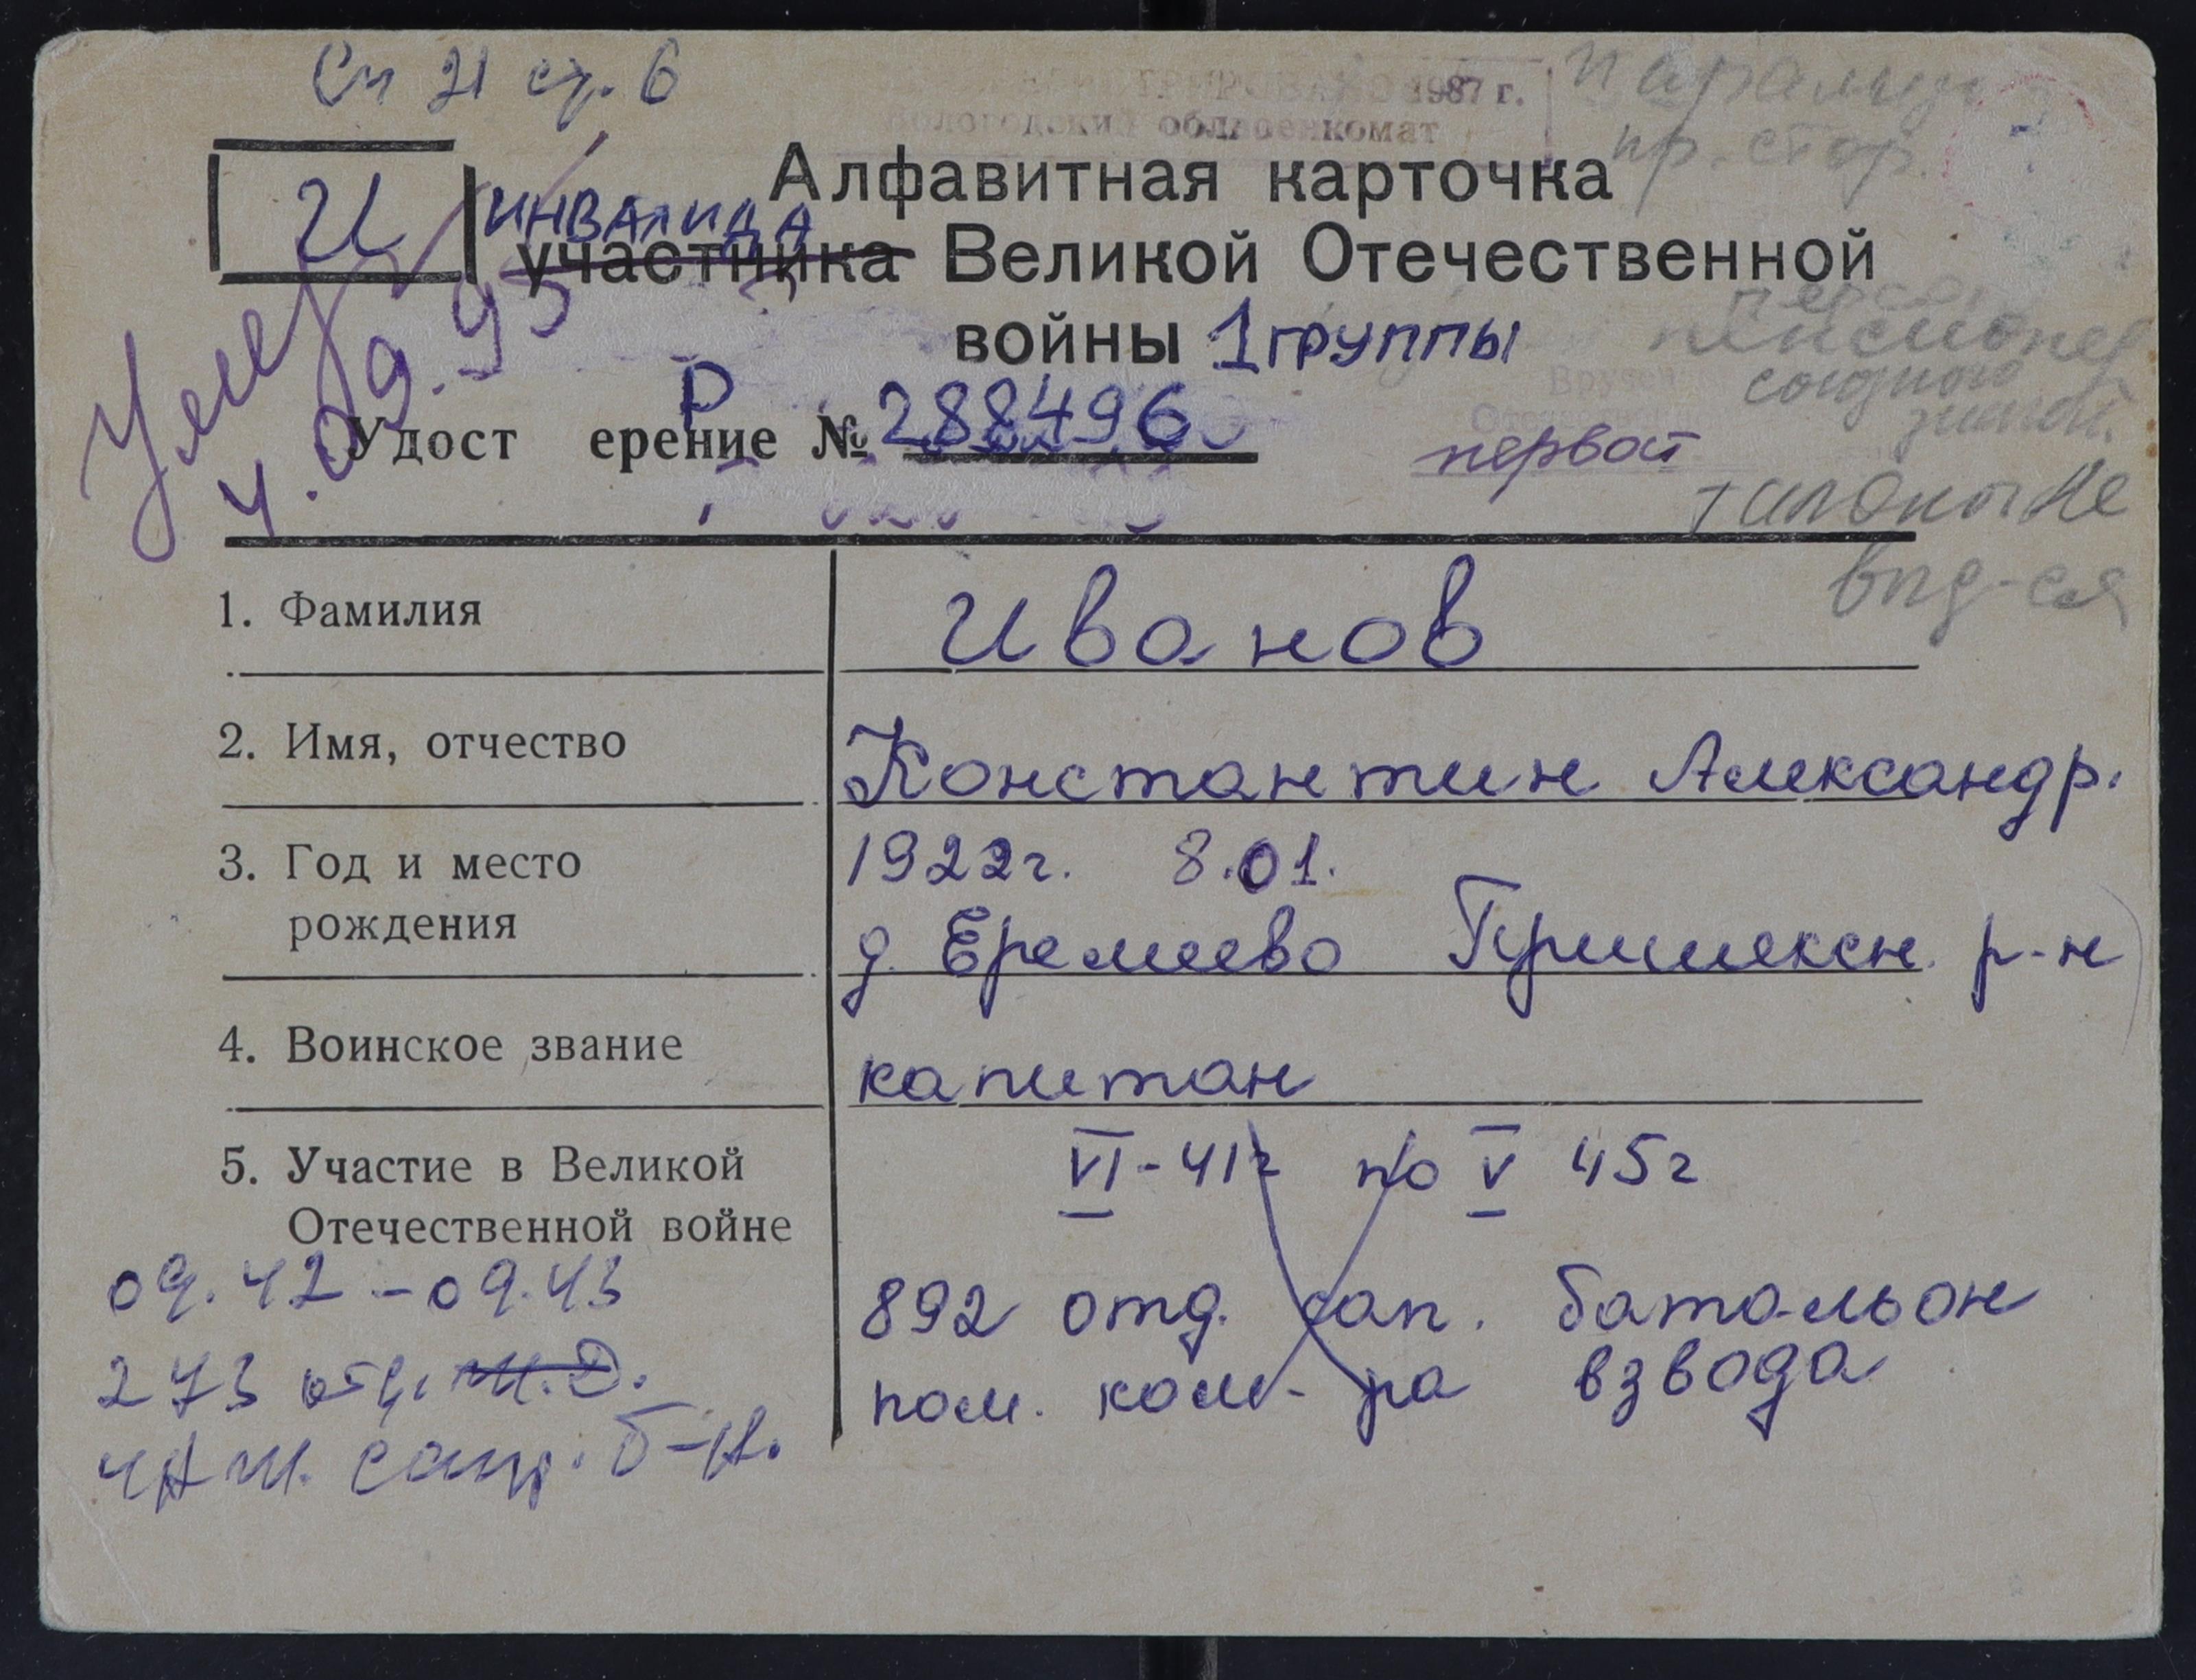 Сп 21 стр. 6
1987 г.
Вологодский облвоенкомат
пр. стор.
И
Алфавитная карточка
ИНВАЛИДА
участника Великой Отечественной
войны 1 группы
Умер
4.09.95
пенсионер
союзного
значен.
Р
Удост ерение № 288496
первой
талоны не
выд-ся
1. Фамилия
Иванов
2. Имя, отчество
Константин Александр.
3. Год и место
рождения
1922г. 8.01.
д. Еремеево Пришексн. р-н
4. Воинское звание
капитан
5. Участие в Великой
Отечественной войне
VI-41г по V 45г
892 отд. сап. батальон
пом. ком-ра взвода
09.42-09.43
273 отд.
б-н.